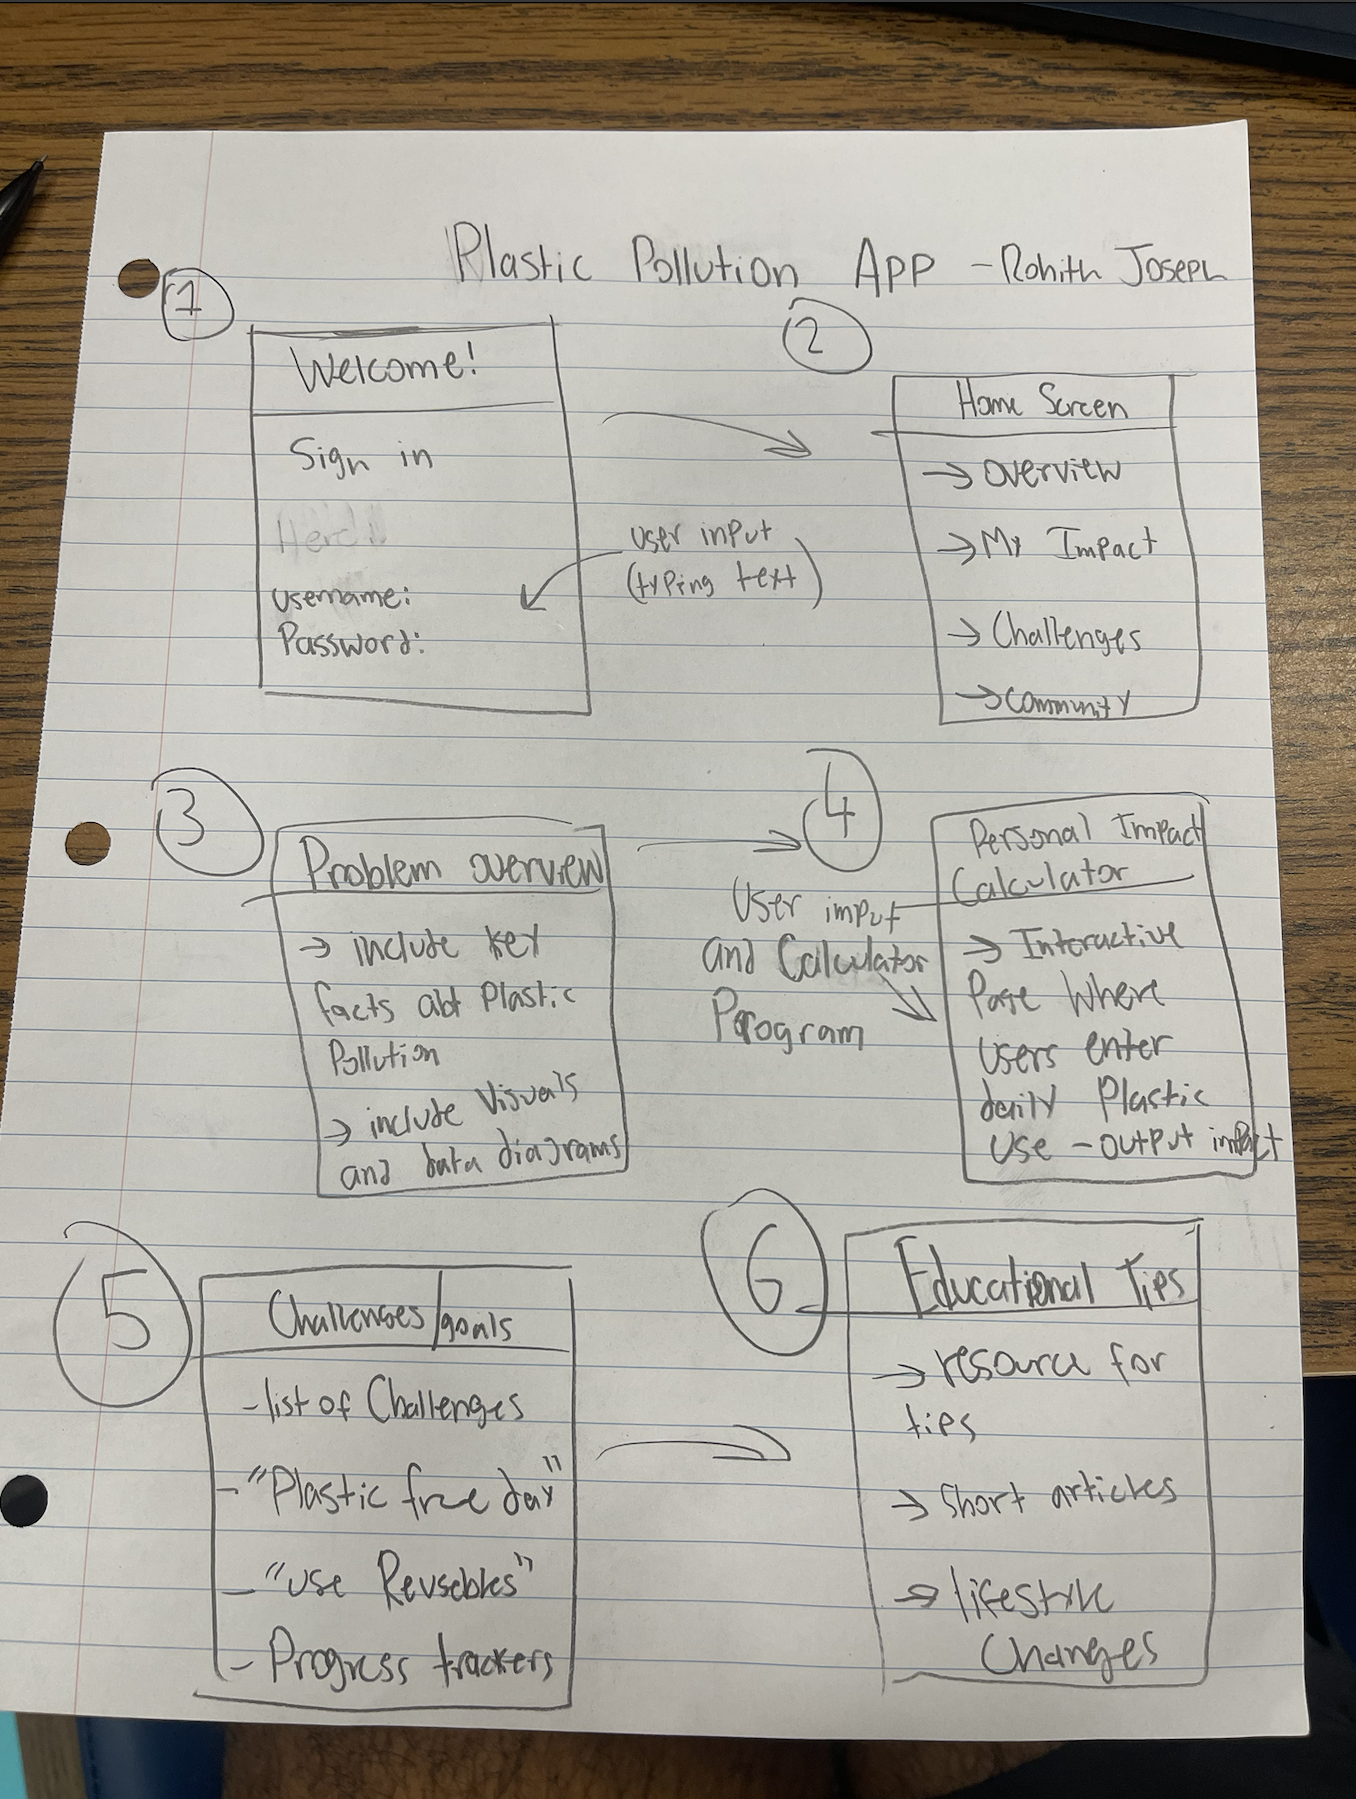 Plastic Pollution App - Rohith Joseph
1
Welcome!
Sign in
Username:
Password:
user input
(typing text)
2
Home Screen
→ overview
→ My Impact
→ Challenges
→ Community
3
Problem overview
→ include key
facts abt Plastic
Pollution
→ include visuals
and data diagrams
4
User input
and Calculator
Program
Personal Impact
Calculator
→ Interactive
Page Where
users enter
daily Plastic
use - output impact
5
Challenges/goals
- list of Challenges
- "Plastic free day"
- "use Reusables"
- Progress trackers
6
Educational Tips
→ resource for
tips
→ Short articles
→ lifestyle
Changes